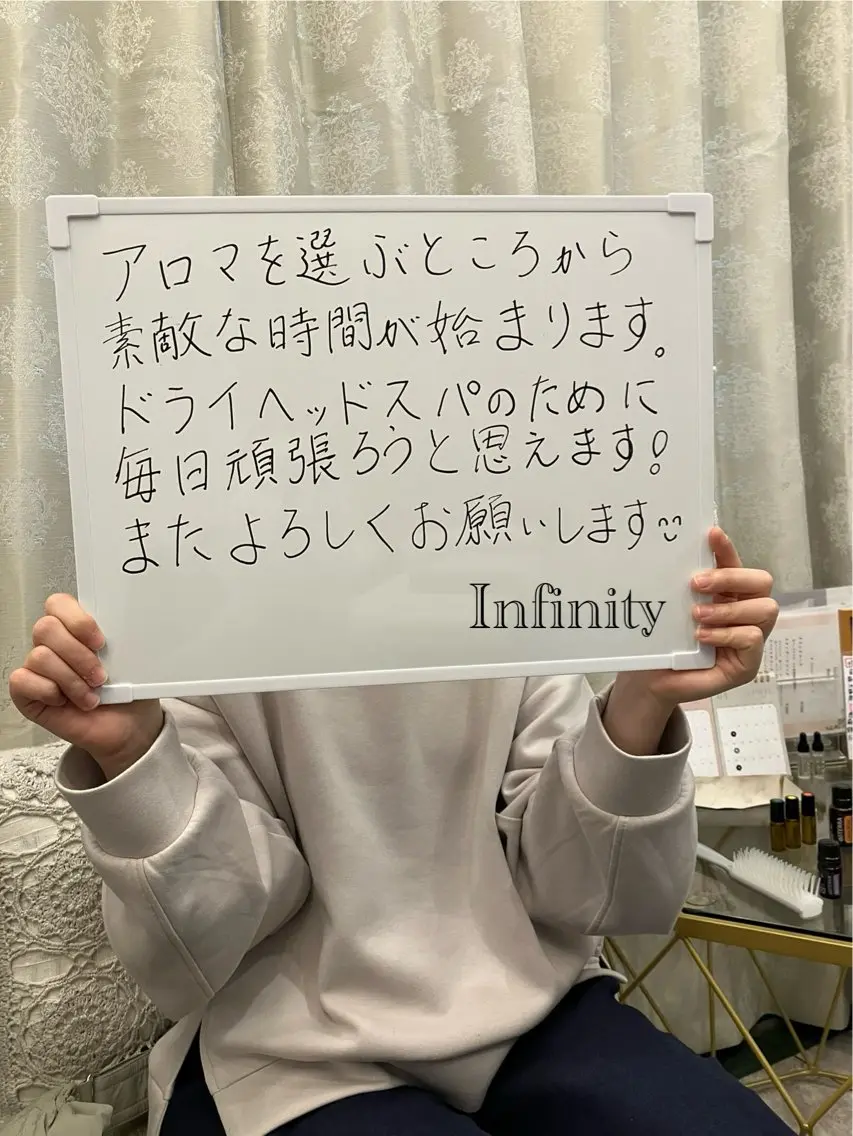 アロマを選ぶところから
素敵な時間が始まります。
ドライヘッドスパのために
毎日頑張ろうと思えます!
またよろしくお願いします
Infinity